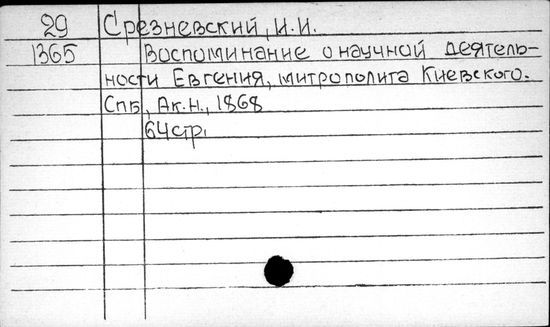 29 Срезневский, И.И.
1365 Воспоминание о научной деятель-
ности Евгения, митрополита Киевского.
Спб, Ак.Н., 1868
64стр.